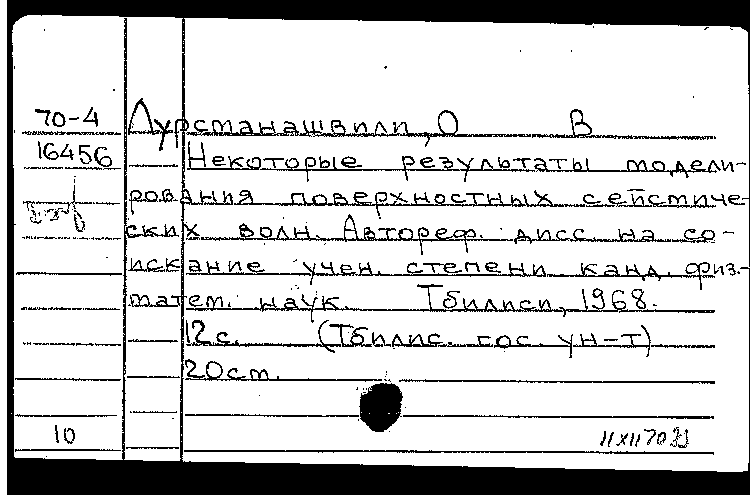 70-4 Лурсманашвили, О В
16456 Некоторые результаты модели-
рования поверхностных сейсмиче-
ских волн. Автореф. дисс. на со-
искание учен. степени канд. физ.-
матем. наук. Тбилиси, 1968.
12 с. (Тбилис. гос. ун-т)
20 см.
10